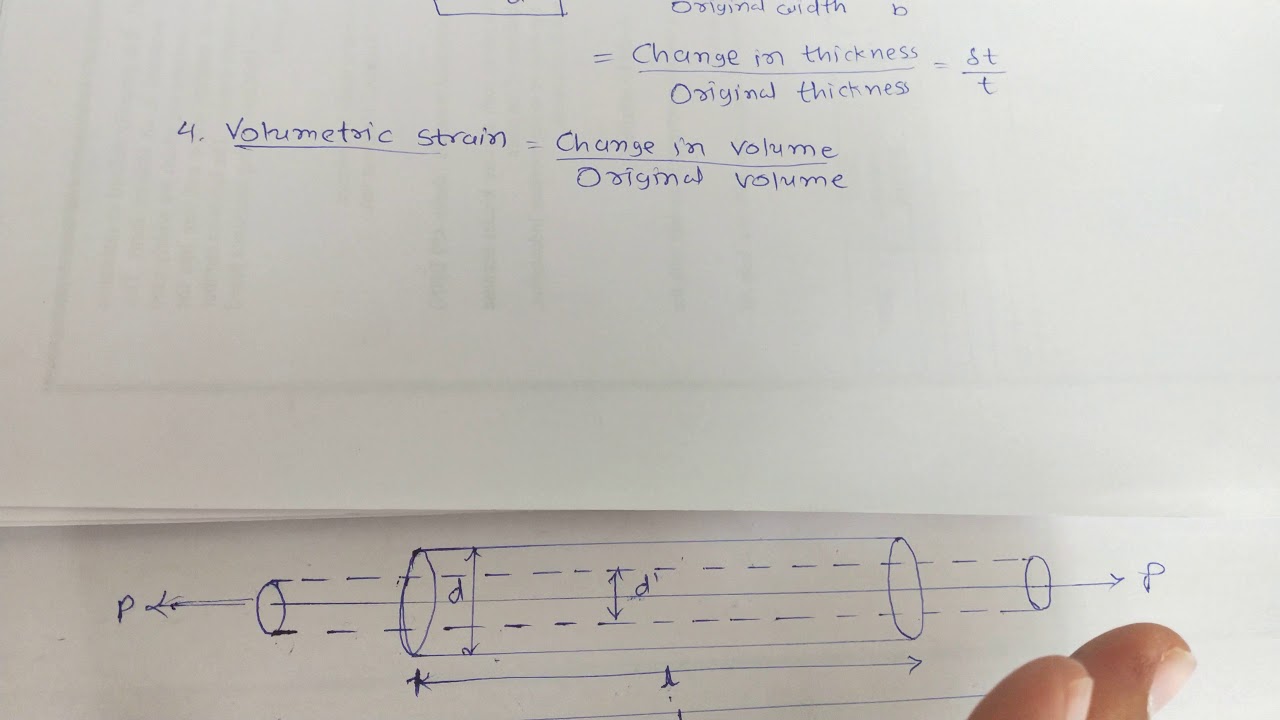 Original width b
= Change in thickness = δt
Original thickness t
4. Volumetric strain = Change in volume
Original volume
P d d' P
l